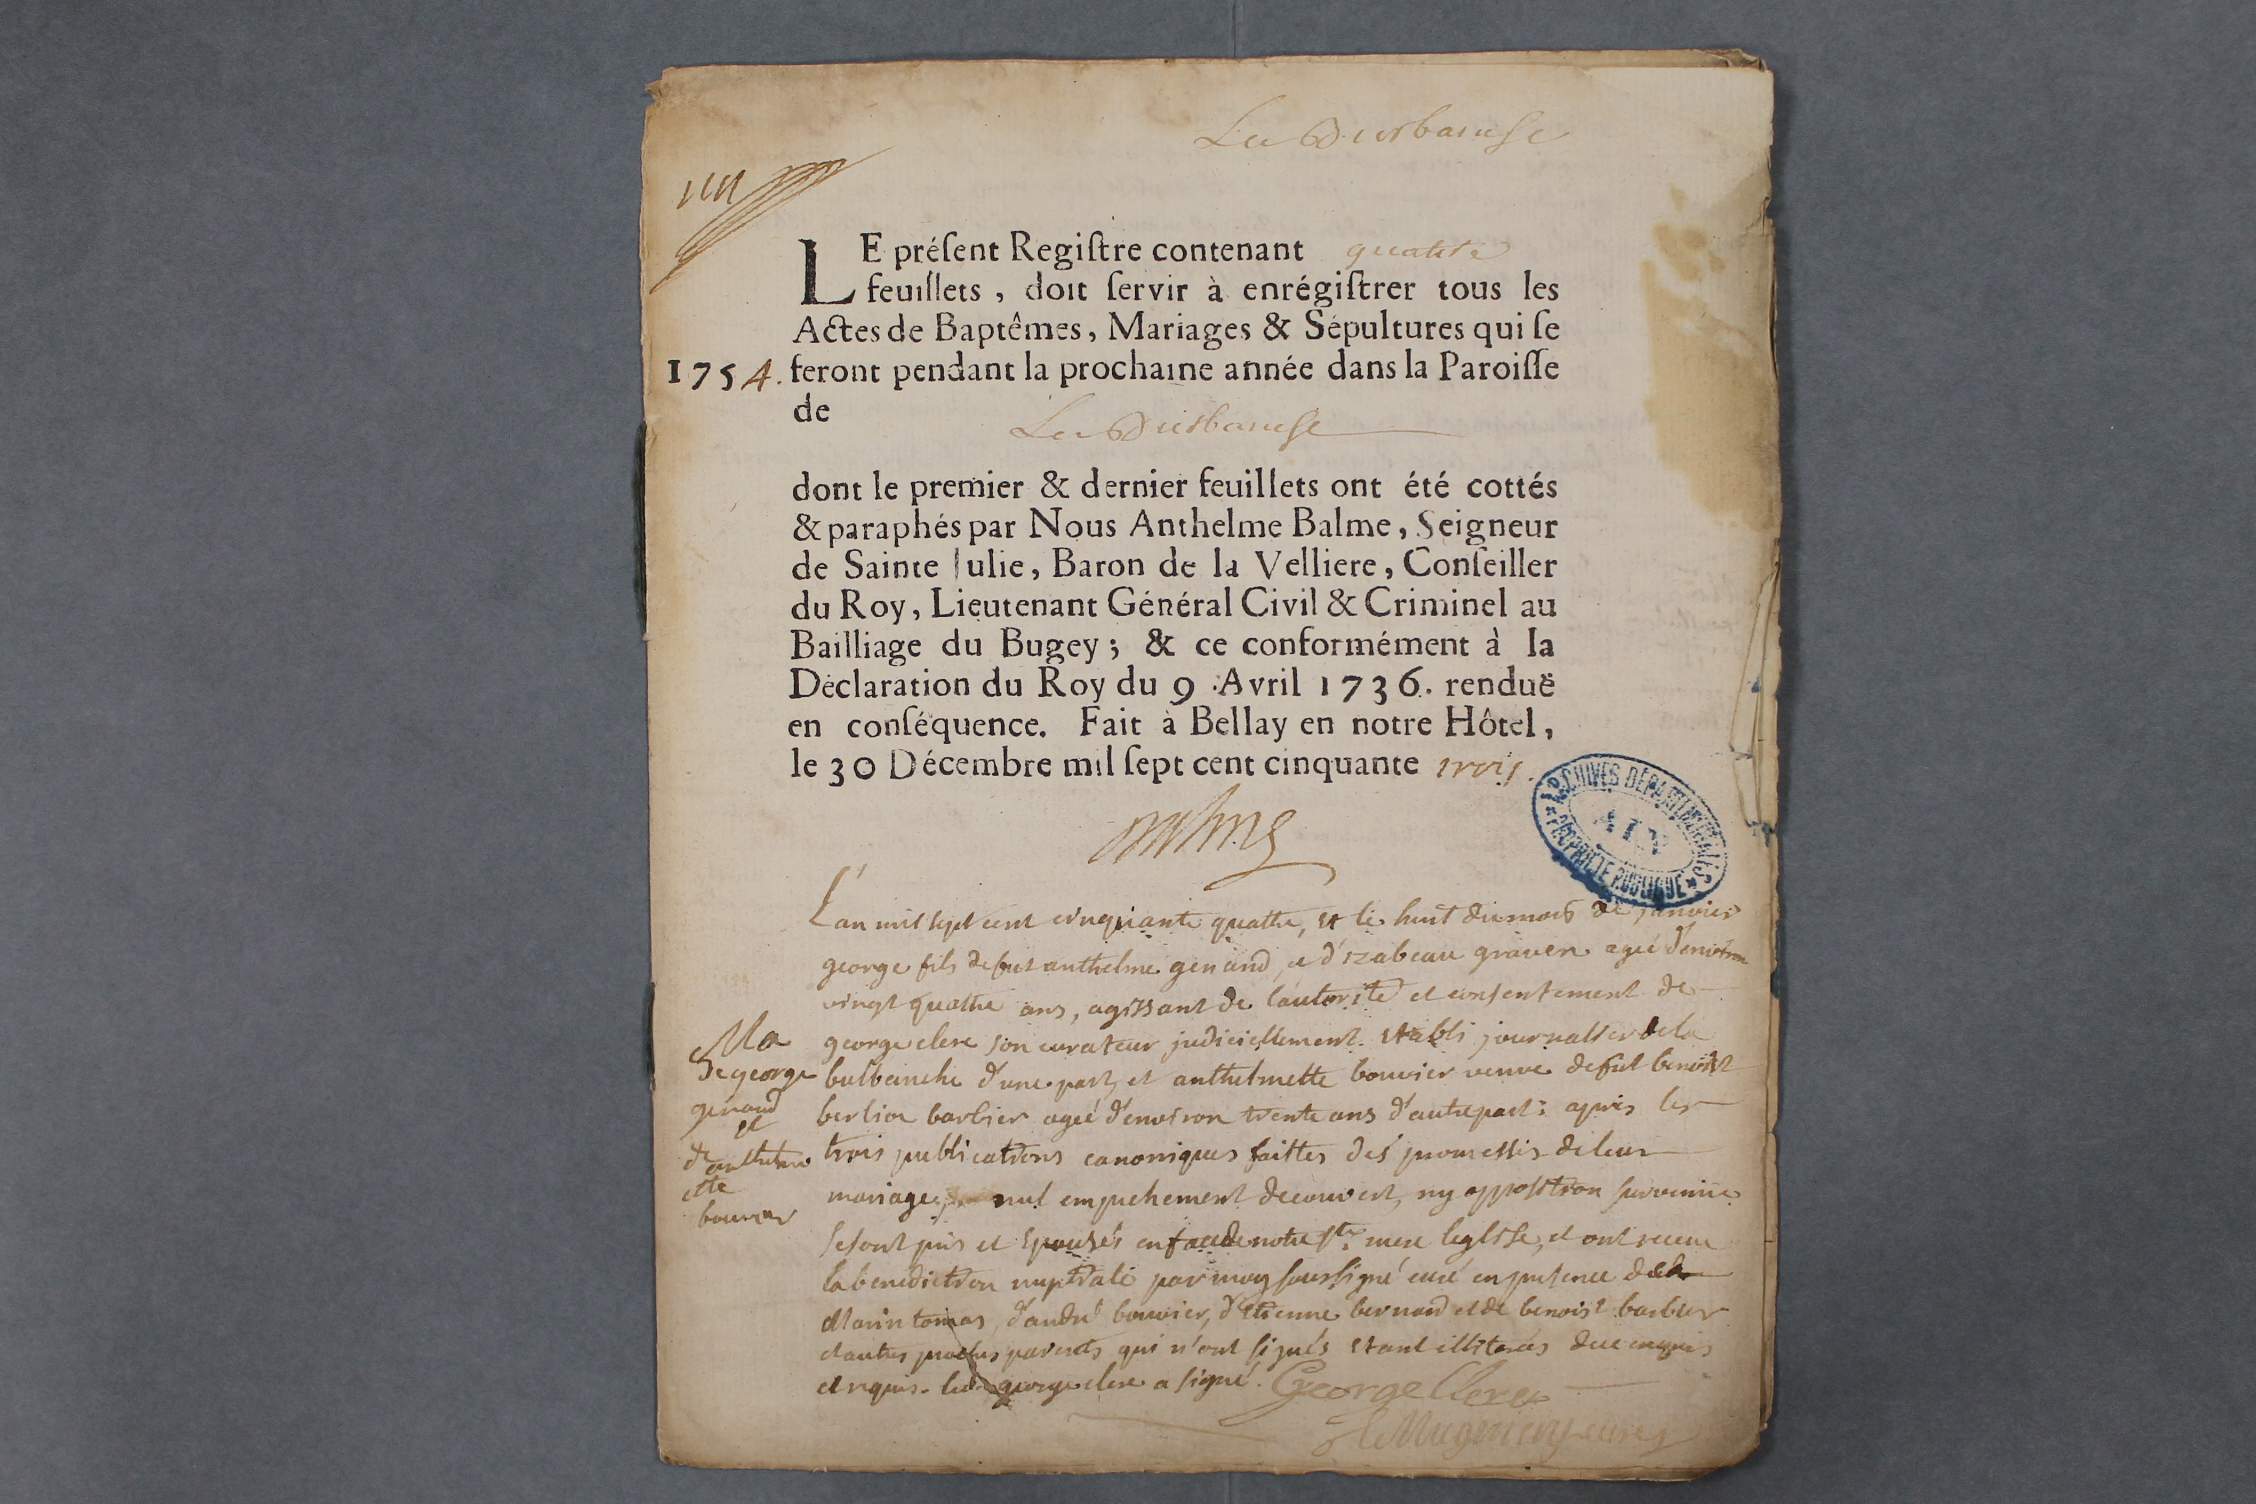 La Burbanche
LE préſent Regiſtre contenant quatre
feuillets, doit ſervir à enrégiſtrer tous les
Actes de Baptêmes, Mariages & Sépultures qui ſe
1754. feront pendant la prochaine année dans la Paroiſſe
de
La Burbanche
dont le premier & dernier feuillets ont été cottés
& paraphés par Nous Anthelme Balme, Seigneur
de Sainte Julie, Baron de la Velliere, Conſeiller
du Roy, Lieutenant Général Civil & Criminel au
Bailliage du Bugey; & ce conformément à la
Déclaration du Roy du 9 Avril 1736. renduë
en conſéquence. Fait à Bellay en notre Hôtel,
le 30 Décembre mil ſept cent cinquante trois.
ARCHIVES DÉPARTEMENTALES
AIN
PROPRIÉTÉ PUBLIQUE
L'an mil sept cent cinquante quattre, et le huit du mois de janvier
george fils de fut anthelme genand, e d'izabeau graven ageé d'environ
vingt quattre ans, agissant de l'autorité et consentement de
george clere son curateur judiciellement etabli journallier de la
bulbanche d'une part, et anthelmette bouvier veuve de fut benoist
berlion barbier ageé d'environ trente ans d'autre part: apres les
trois publications canoniques faittes des promesses de leur
mariage, nul empechement decouvert, ny opposition survenüe
se sont pris et epousés en face de notre ste mere leglisse, et ont receue
la benediction nuptiale par moy soussigné curé en presence de
Marin tomas, d'andré bouvier, d'etienne bernard et de benoist barbier
et autres proches parents qui n'ont signés etant illiterés deue enquis
et requis. led george clere a signé. George Clere
Ma
de george
genand
et
de anthelm
ette
bouvier
curé